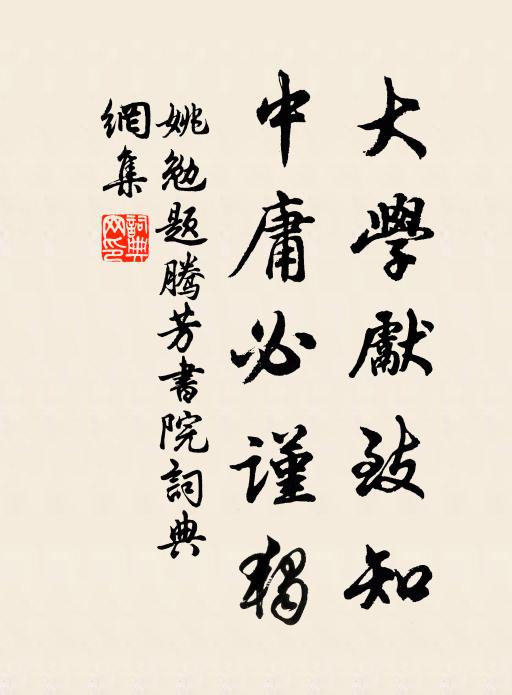 大學獻致知
中庸必謹獨
姚勉題騰芳書院詞典
網集
詞典
网印